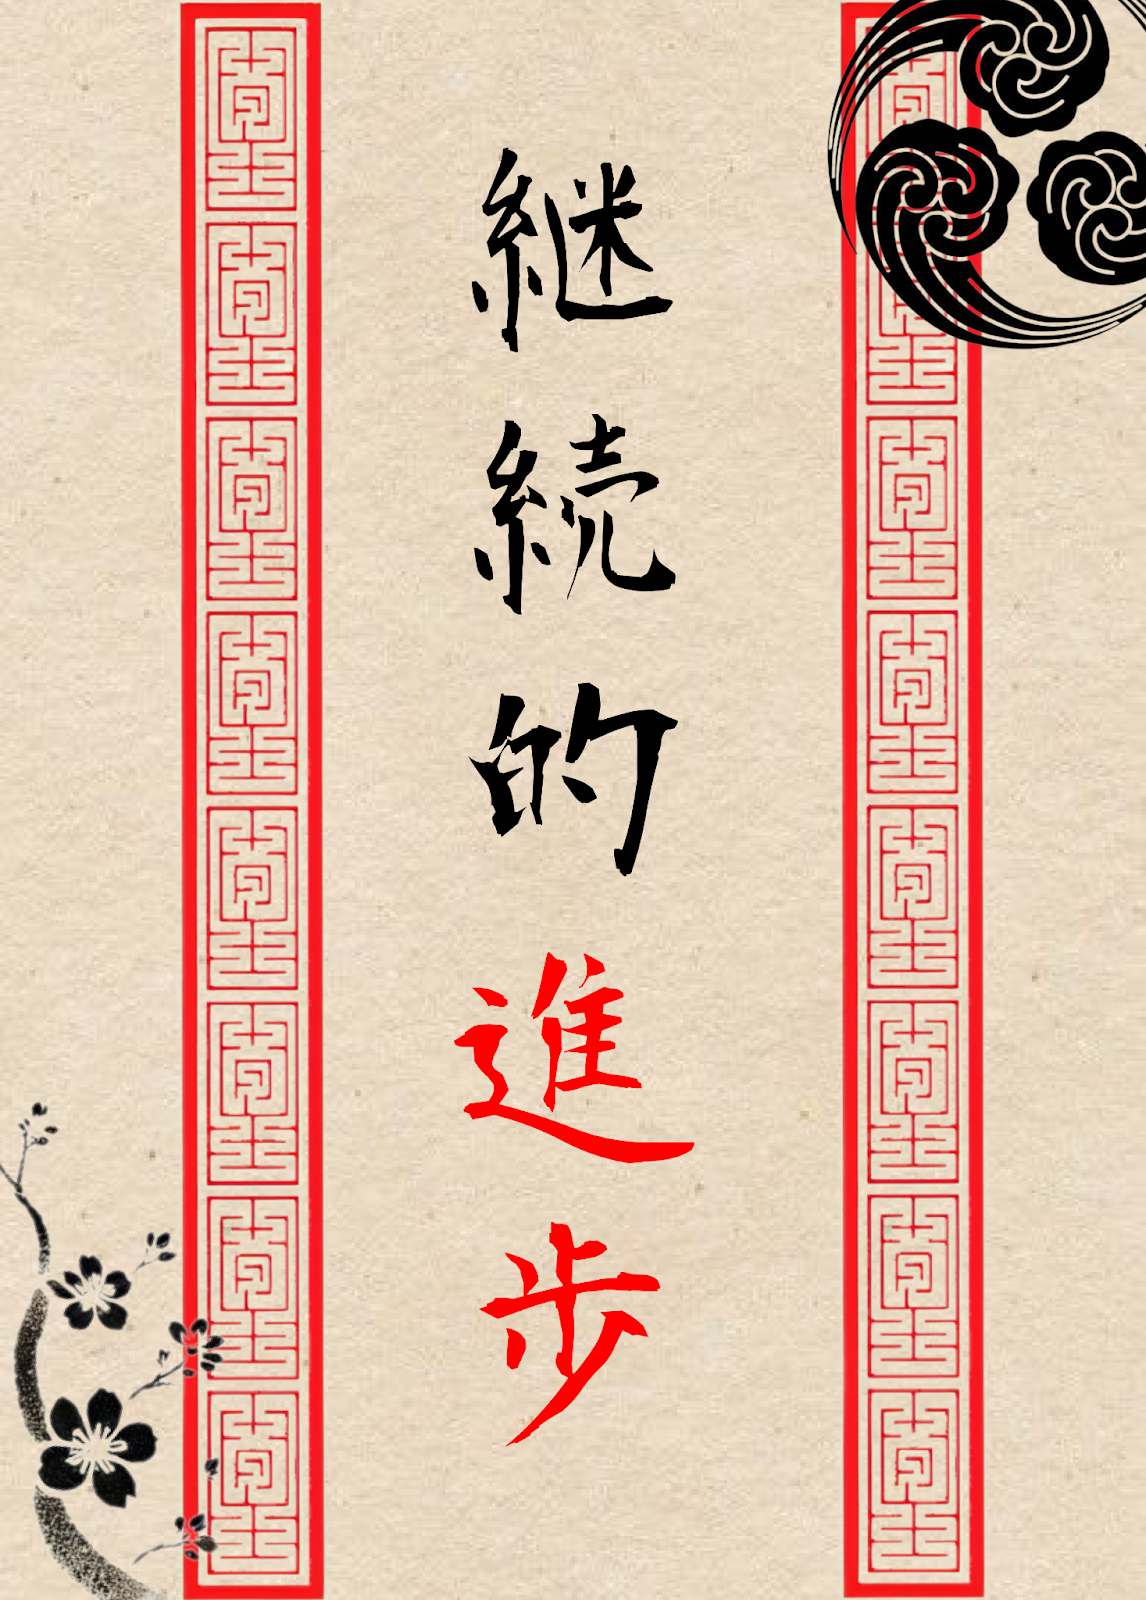 継続的進歩